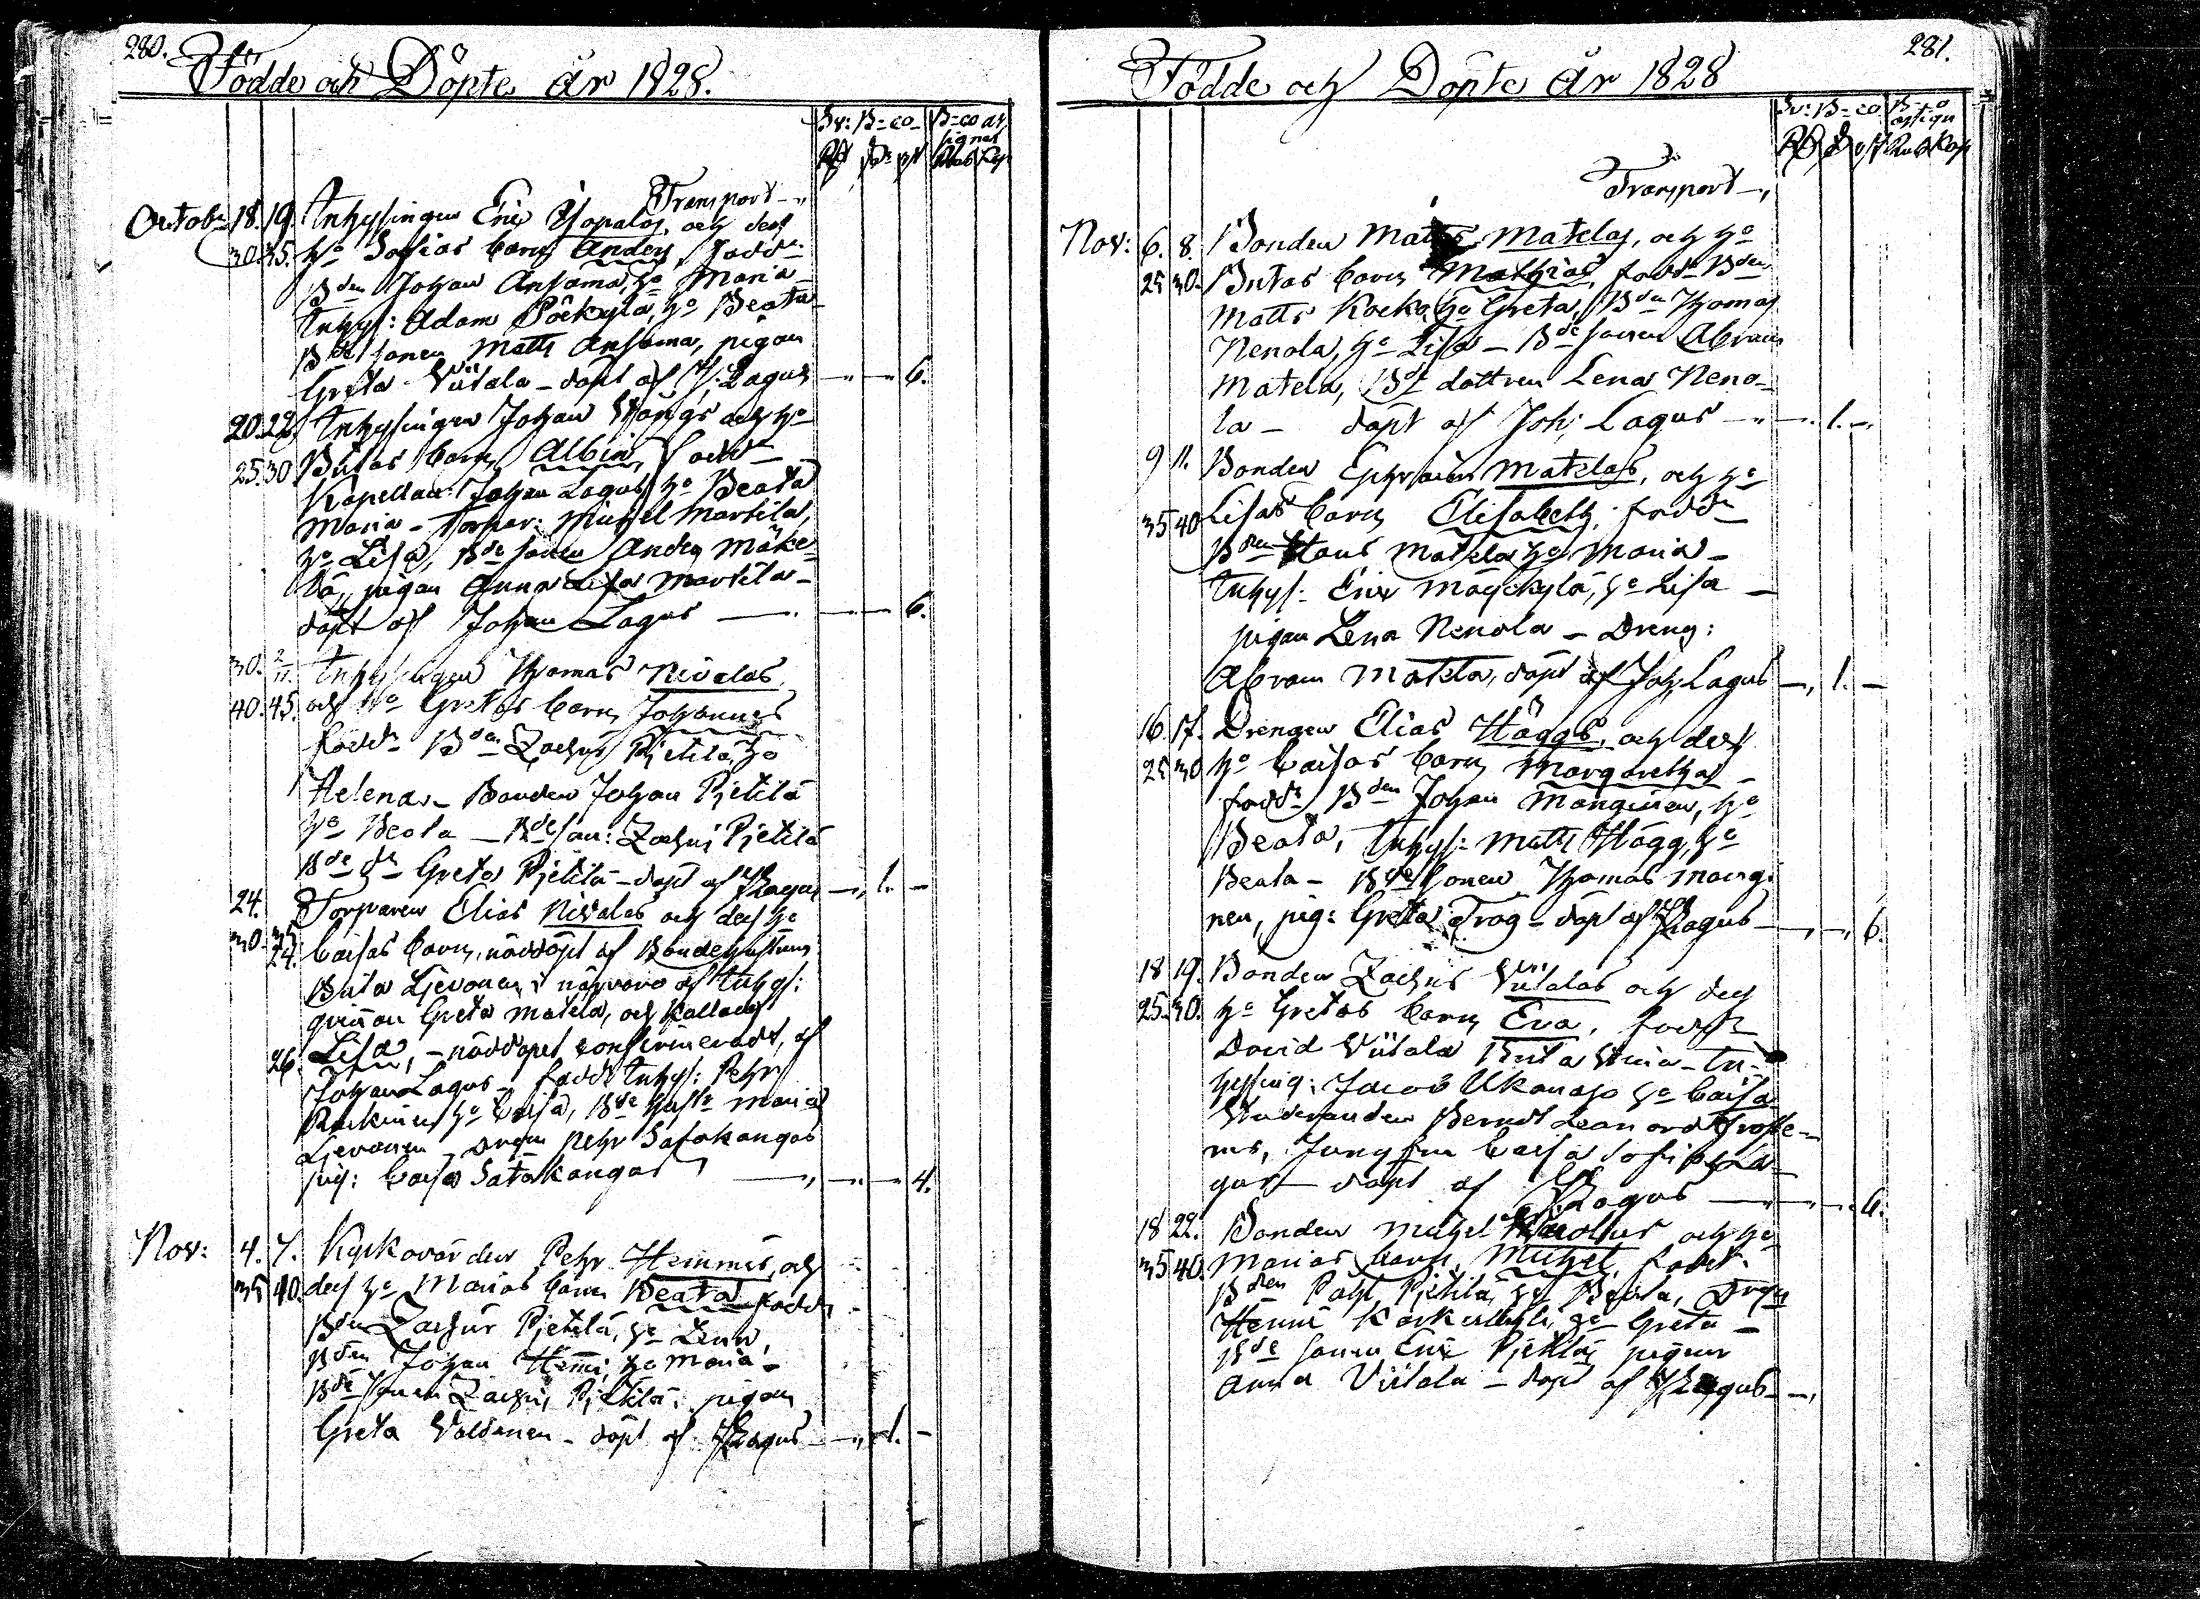 280.
Födde och Döpte år 1828.
Sv: B=co B=co as
signat
Rd sk rst Rub Kop
Transport
Octobr 18. 19. Inhysingen Eric Yopalas, och dess
30.35. ho Sofias barn Anders, fadde
Bden Johan Ansama, ho Maria
Inhys: Adam Påckylä, ho Beata
Bde sonen Matts Ansama, pigan
Greta Viitala - döpt af J: Lagus 6.
20.22. Inhysingen Johan och ho
25.30 Britas barn Albin, fadde
Kapellan: Johan Lagus, ho Beata
Maria - Torpar: Michel Martila,
ho Lisa, Bde sonen Anders Mäke-
lä, pigan Anna Lisa Martila -
döpt af Johan Lagus 6.
30. 2/11. Inhysingen Thomas Nivalas
40.45. och ho Gretas barn Johannes
fadde Bden Zachris Pietilä, ho
Helena - Bonden Johan Pietilä
ho Beata - Bde son: Zachris Pietilä
Bde dr Greta Pietilä - döpt af J Lagus 1. -
24. Torparen Elias Nivalas och dess ho
30. 35. Caisas barn, nöddöpt af Bondehustrun
24. Brita Ljevonen i närvaro af Inhys:
qvinnan Greta Matela, och kallades
26. Lisa, - nöddopet confirmeradt, af
Johan Lagus - fadde Inhys: Pehr
ho Caisa, Bde hust: Maria
Ljevonen - Drgen Pehr Satokangas
pig: Caisa Satokangas 4.
Nov: 4. 7. Kyrkovärden Pehr Hemmis, och
35 40. dess ho Marias barn Beata fadde
Bden Zachris Pietilä, ho Lena,
Bden Johan Hemmi, ho Maria -
Bde sonen Zachris Pietilä, pigan
Greta Väldänen - döpt af J Lagus 1. -
281.
Födde och Döpte år 1828
Sv: B=co B=co
assign
Rd sk rst Rub Kop
Transport
Nov: 6. 8. Bonden Matts Matelas, och ho
25 30. Britas barn Mathias, fadde Bden
Matts Kocko, ho Greta, Bden Thomas
Nenola, ho Lisa - Bde sonen Abram
Matela, Bde dottren Lena Neno-
la - döpt af Joh: Lagus 1. -
9 11. Bonden Ephraim Matelas, och ho
35 40 Lisas barn Elisabeth, fadde
Bden Hans Matela ho Maria -
Inhys: Eric Mäyckylä, ho Lisa -
pigan Lena Nenola - Dreng:
Abram Matela, döpt af Joh Lagus 1. -
16 17. Drengen Elias Häggs, och dess
25 30 ho Caisas barn Margaretha -
fadde Bden Johan Manginen, ho
Beata, Inhys: Matts Hägg, ho
Beata - Bde sonen Thomas Mangi-
nen, pig: Greta Trog - döpt af J Lagus 6.
18 19. Bonden Zachris Viitalas och dess
25.30. ho Gretas barn Eva, fadde
David Viitala Brita Stina - In-
hysing: Jacob Ukonaho ho Caisa
Studeranden Berndt Leonard Froste-
rus, Jungfru Caisa Sofia La-
gus - döpt af J Lagus 6.
18 22. Bonden Michel och ho
35 40. Marias barn, Michel, fadde
Bden Pehr Pietilä, ho Beata, Drgen
Hemmi ho Greta -
Bde sonen Eric Pietilä, pigan
Anna Viitala - döpt af J Lagus